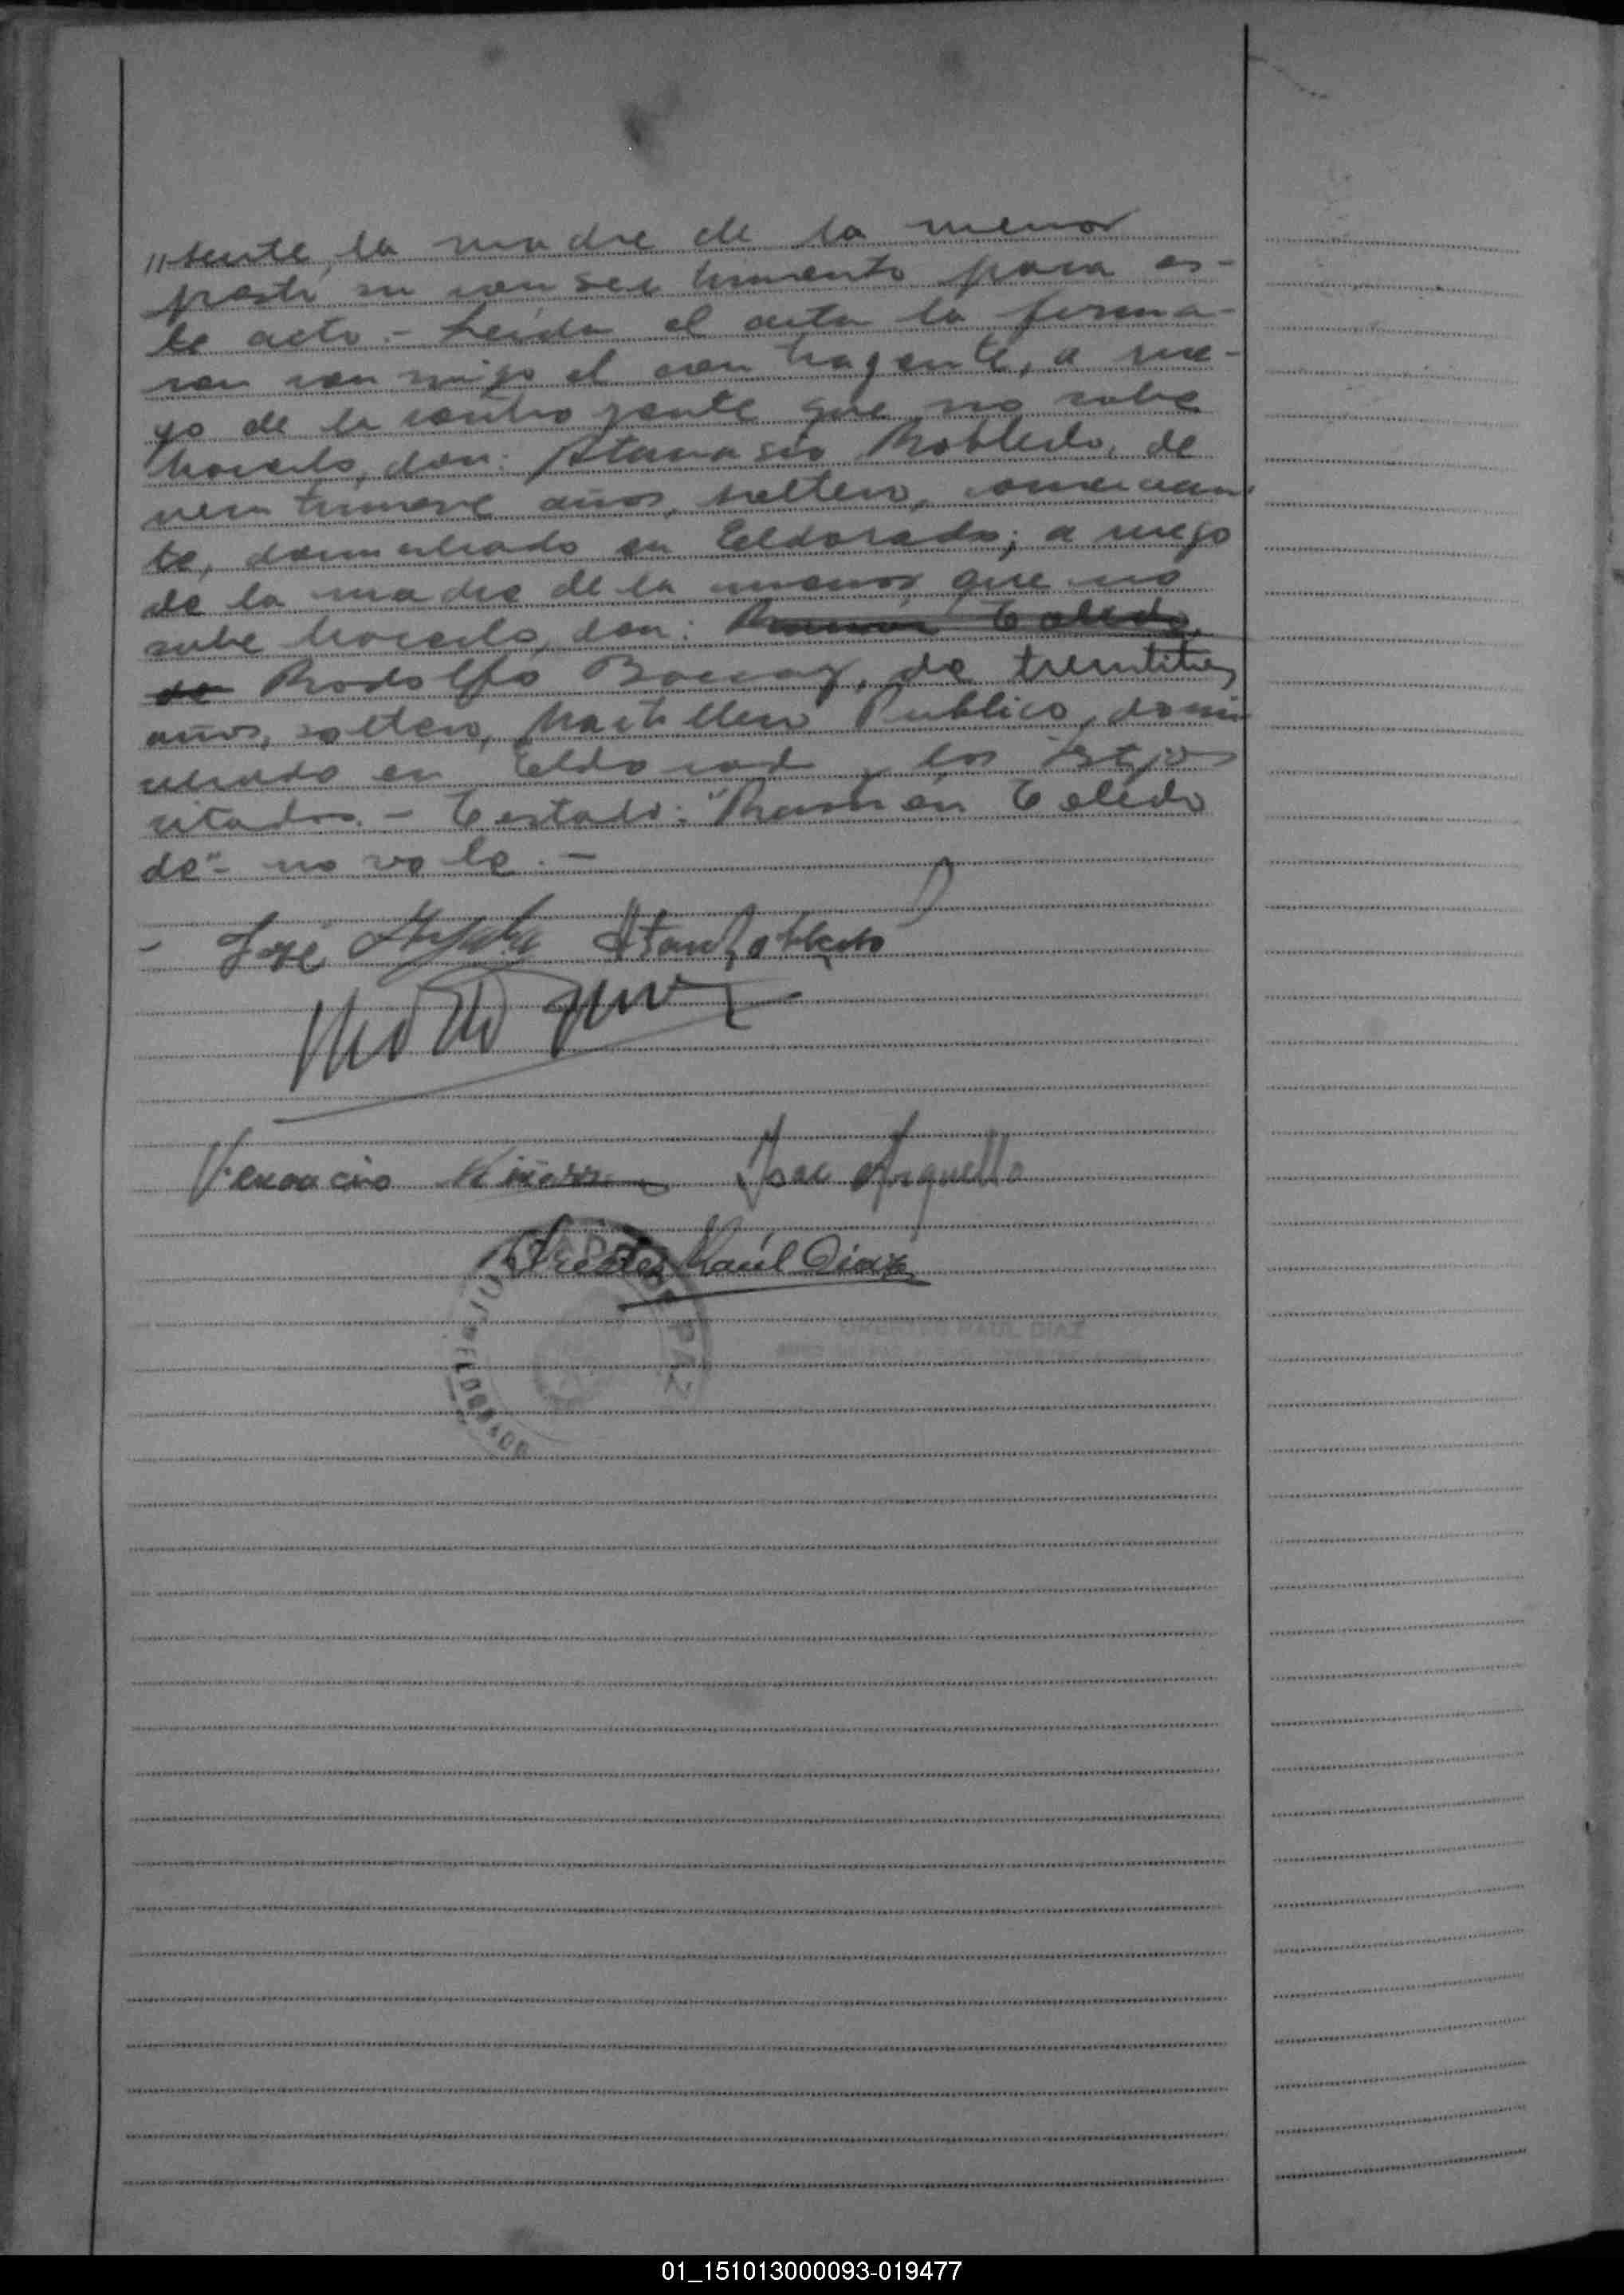 "sente, la madre de la menor
prestó su consentimiento para es-
te acto.- Leída el acta la firma-
ron conmigo el contrayente, a rue-
go de la contrayente que no sabe
hacerlo, don: Atanasio Robledo, de
veintinueve años, soltero, comercian-
te, domiciliado en Eldorado; a ruego
de la madre de la menor que no
sabe hacerlo, don: Ramón Toledo,
de Rodolfo de treintitres
años, soltero, Martillero Público, domi
ciliado en Eldorado y los testigos
citados.- Testado: "Ramón Toledo
de"- no vale.-
José Atan Robledo
Venancio José Arguello
Orestes Raúl Diaz
DE PAZ
ELDORADO
RAUL DIAZ
01_151013000093-019477